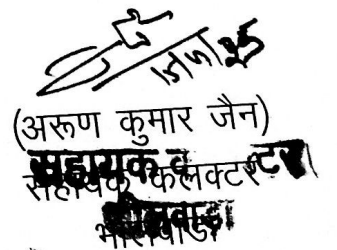 (अरूण कुमार जैन)
सहायक कलक्टर
भीलवाड़ा